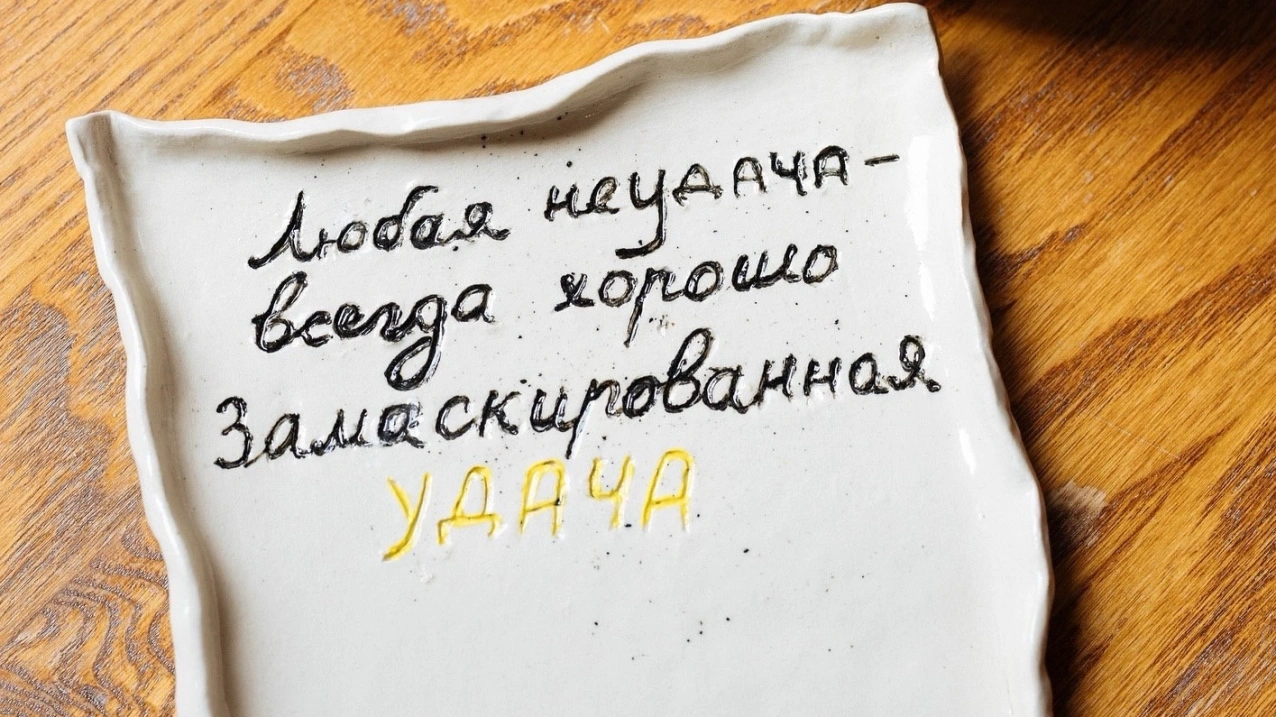 Любая неудача –
всегда хорошо
Замаскированная
УДАЧА